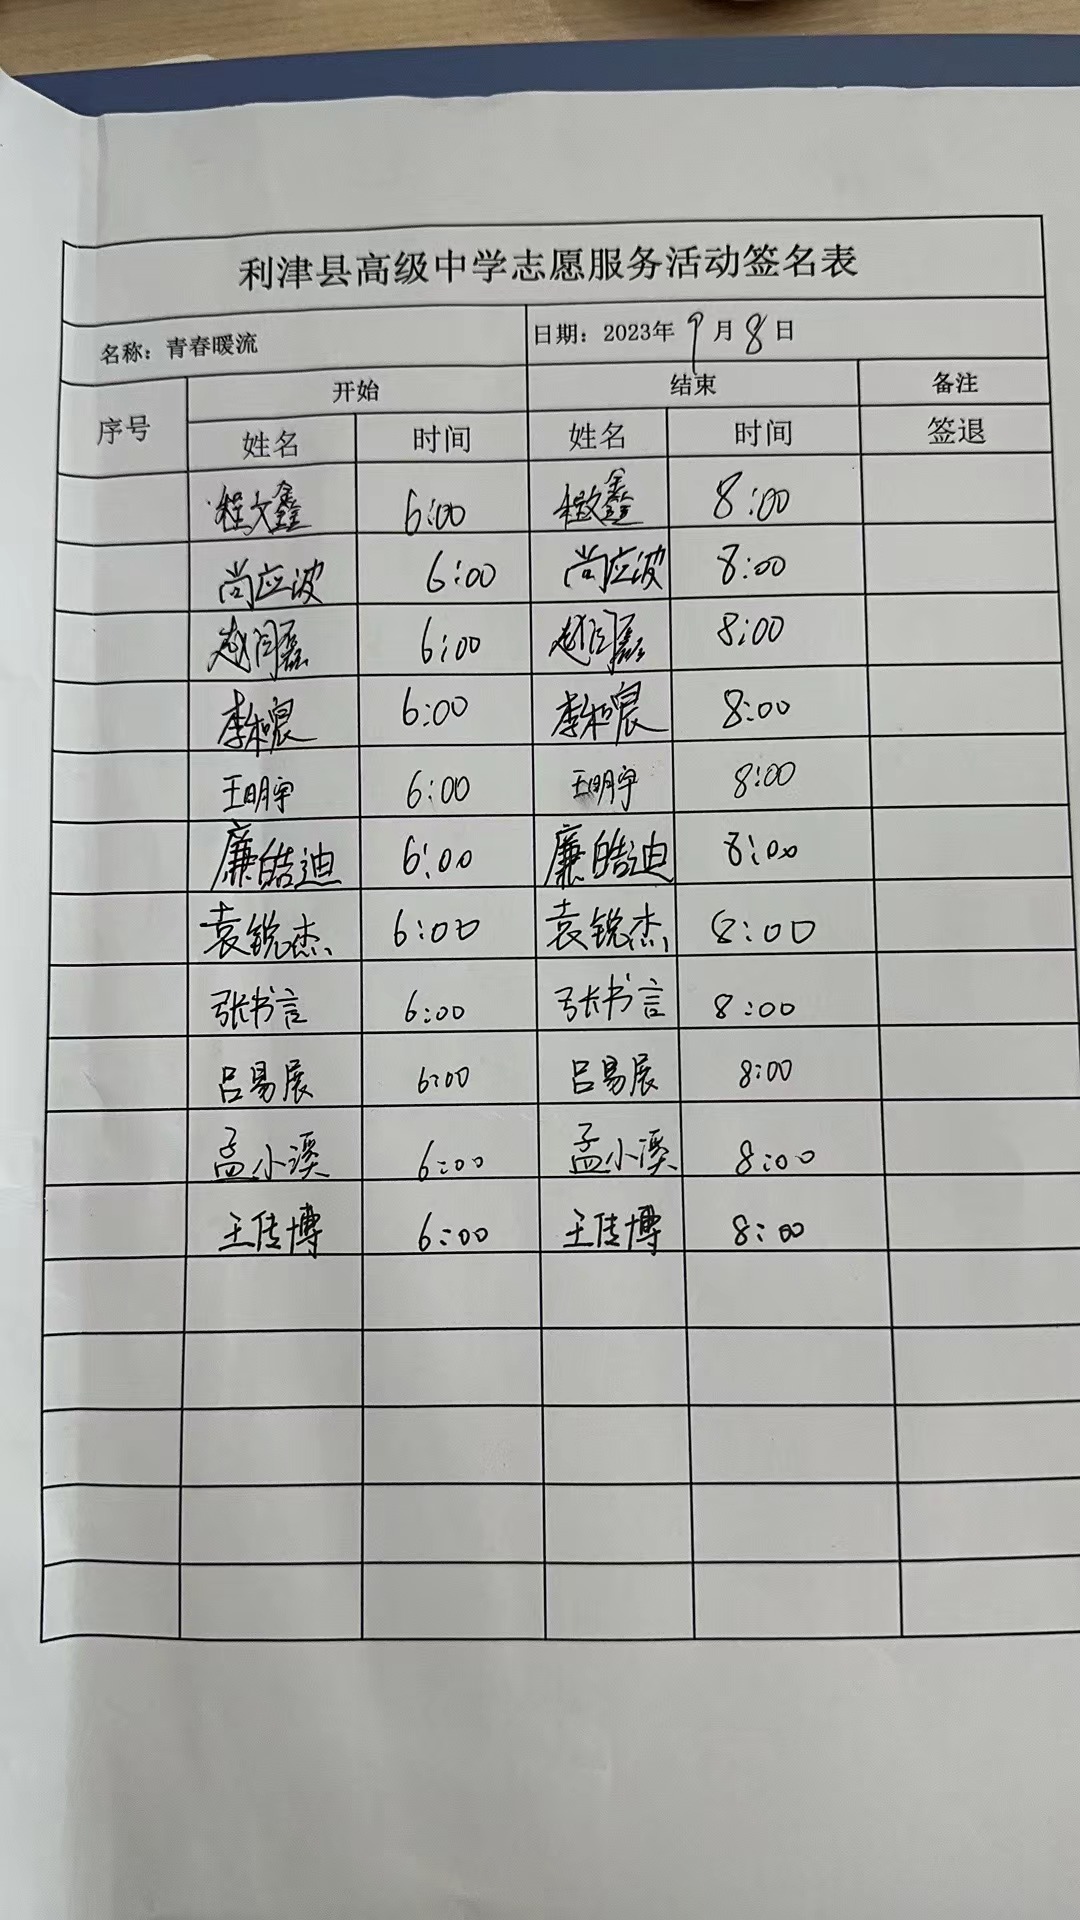 利津县高级中学志愿服务活动签名表
名称：青春暖流 日期：2023年 9月 8日
序号 开始 结束 备注
姓名 时间 姓名 时间 签退
程文鑫 6:00 程文鑫 8:00
尚应波 6:00 尚应波 8:00
赵闰磊 6:00 赵闰磊 8:00
李和宸 6:00 李和宸 8:00
王明宇 6:00 王明宇 8:00
廉皓迪 6:00 廉皓迪 8:00
袁锐杰 6:00 袁锐杰 8:00
张书言 6:00 张书言 8:00
吕易展 6:00 吕易展 8:00
孟小溪 6:00 孟小溪 8:00
王传博 6:00 王传博 8:00